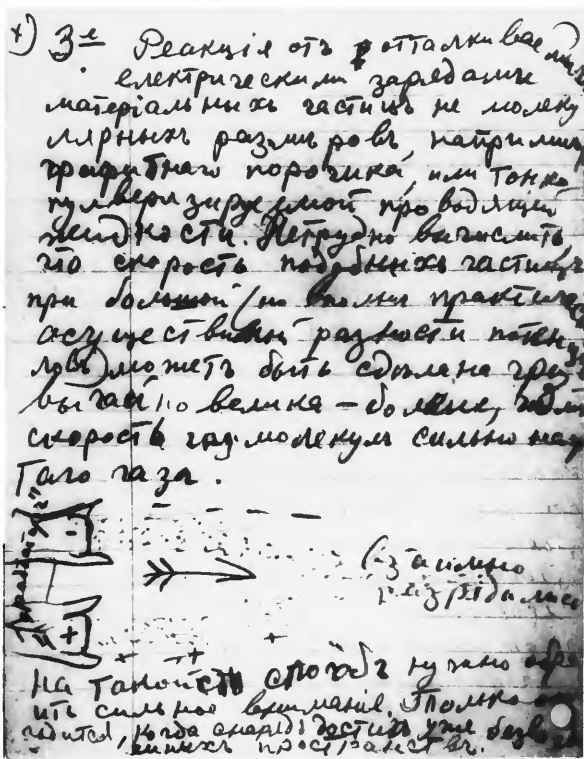 ×) 3е Реакція отъ отталкиваемыхъ
електрическими зарядами
матеріальныхъ частицъ не молеку
лярныхъ размѣровъ, наприм
графитнаго порошка, или тонко
пулверизируемой проводящей
жидкости. Нетрудно вычислить,
что скорость подобныхъ частицъ
при большой (но вполнѣ практич
осуществимой разности потен
ловъ) можетъ быть сдѣлана чрез
вычайно велика – болѣе,
скорость молекул сильно наг
таго газа.
–
+
(взаимно
разрядились
+
++
+
На такой способъ нужно обра
ить сильное вниманіе. Только
годится, когда снарядъ достигъ уже безво
шныхъ пространствъ.